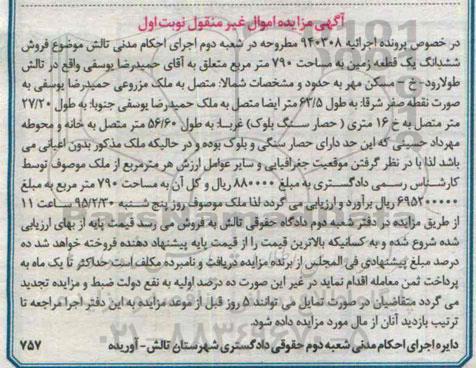 آگهی مزایده اموال غیر منقول نوبت اول
در خصوص پرونده اجرائیه ۹۴۰۳۰۸ مطروحه در شعبه دوم اجرای احکام مدنی تالش موضوع فروش
ششدانگ یک قطعه زمین به مساحت ۷۹۰ متر مربع متعلق به آقای حمیدرضا یوسفی واقع در تالش
طولارود - خ - مسکن مهر به حدود و مشخصات شمالا: متصل به ملک مزروعی حمیدرضا یوسفی به
صورت نقطه صفر شرقا: به طول ۶۲/۵ متر ایضا متصل به ملک حمیدرضا یوسفی جنوبا: به طول ۲۷/۲۰
متر متصل به خ ۱۶ متری ( حصار سنگ بلوک) غربا: به طول ۵۶/۶۰ متر متصل به خانه و محوطه
مهرداد حسینی که این حد دارای حصار سنگی و بلوک بوده و در حالیکه ملک مذکور بدون اعیانی می
باشد لذا با در نظر گرفتن موقعیت جغرافیایی و سایر عوامل ارزش هر مترمربع از ملک موصوف توسط
کارشناس رسمی دادگستری به مبلغ ۸۸۰۰۰۰ ریال و کل آن به مساحت ۷۹۰ متر مربع به مبلغ
۶۹۵۲۰۰۰۰۰ ریال برآورد و ارزیابی می گردد لذا ملک موصوف روز پنج شنبه ۹۵/۲/۳۰ ساعت ۱۱
از طریق مزایده در دفتر شعبه دوم دادگاه حقوقی تالش به فروش می رسد قیمت پایه از بهای ارزیابی
شده شروع شده و به کسانیکه بالاترین قیمت را از قیمت پایه پیشنهاد دهنده فروخته خواهد شد ده
درصد مبلغ پیشنهادی فی المجلس از برنده مزایده دریافت و نامبرده مکلف است حداکثر تا یک ماه به
پرداخت ثمن معامله اقدام نماید در غیر این صورت ده درصد اولیه به نفع دولت ضبط و مزایده تجدید
می گردد متقاضیان در صورت تمایل می توانند ۵ روز قبل از موعد مزایده به این دفتر اجرا مراجعه تا
ترتیب بازدید آنان از مال مورد مزایده داده شود.
دایره اجرای احکام مدنی شعبه دوم حقوقی دادگستری شهرستان تالش - آوریده ۷۵۷